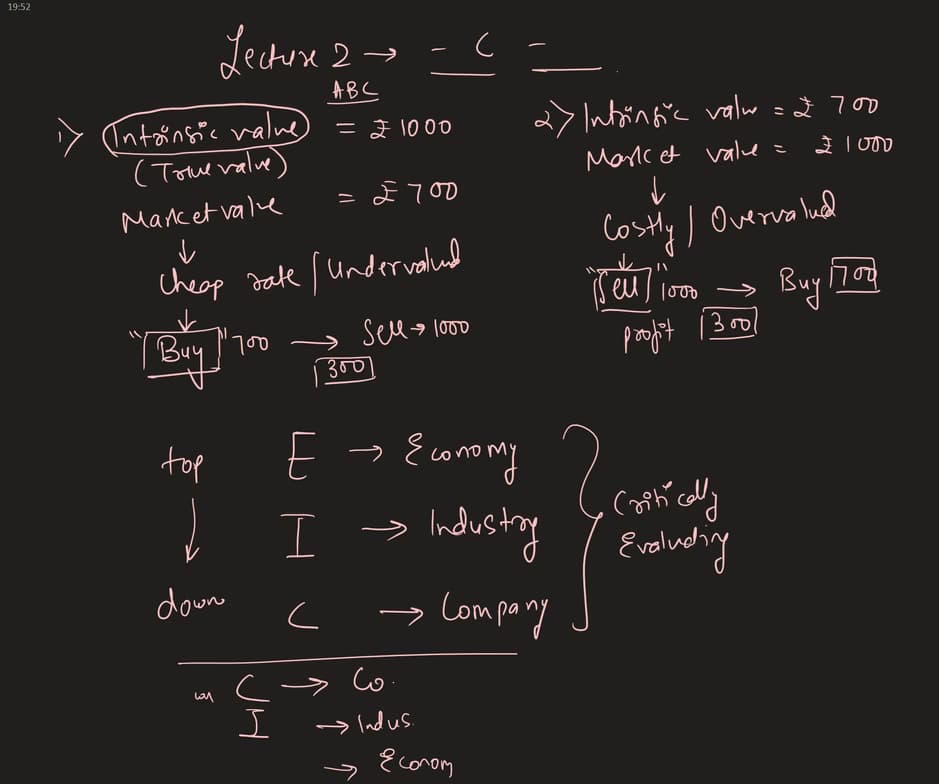 19:52
Lecture 2 → - C -
ABC
1> Intrinsic value = ₹ 1000
(True value)
Market value = ₹ 700
↓
Cheap rate / Undervalued
↓
"Buy" 700 → Sell → 1000
300
2> Intrinsic value = ₹ 700
Market value = ₹ 1000
↓
Costly / Overvalued
↓
"Sell" 1000 → Buy 700
profit 300
top E → Economy
↓ I → Industry
down C → Company
Critically
Evaluating
C → Co.
I → Indus.
→ Econom